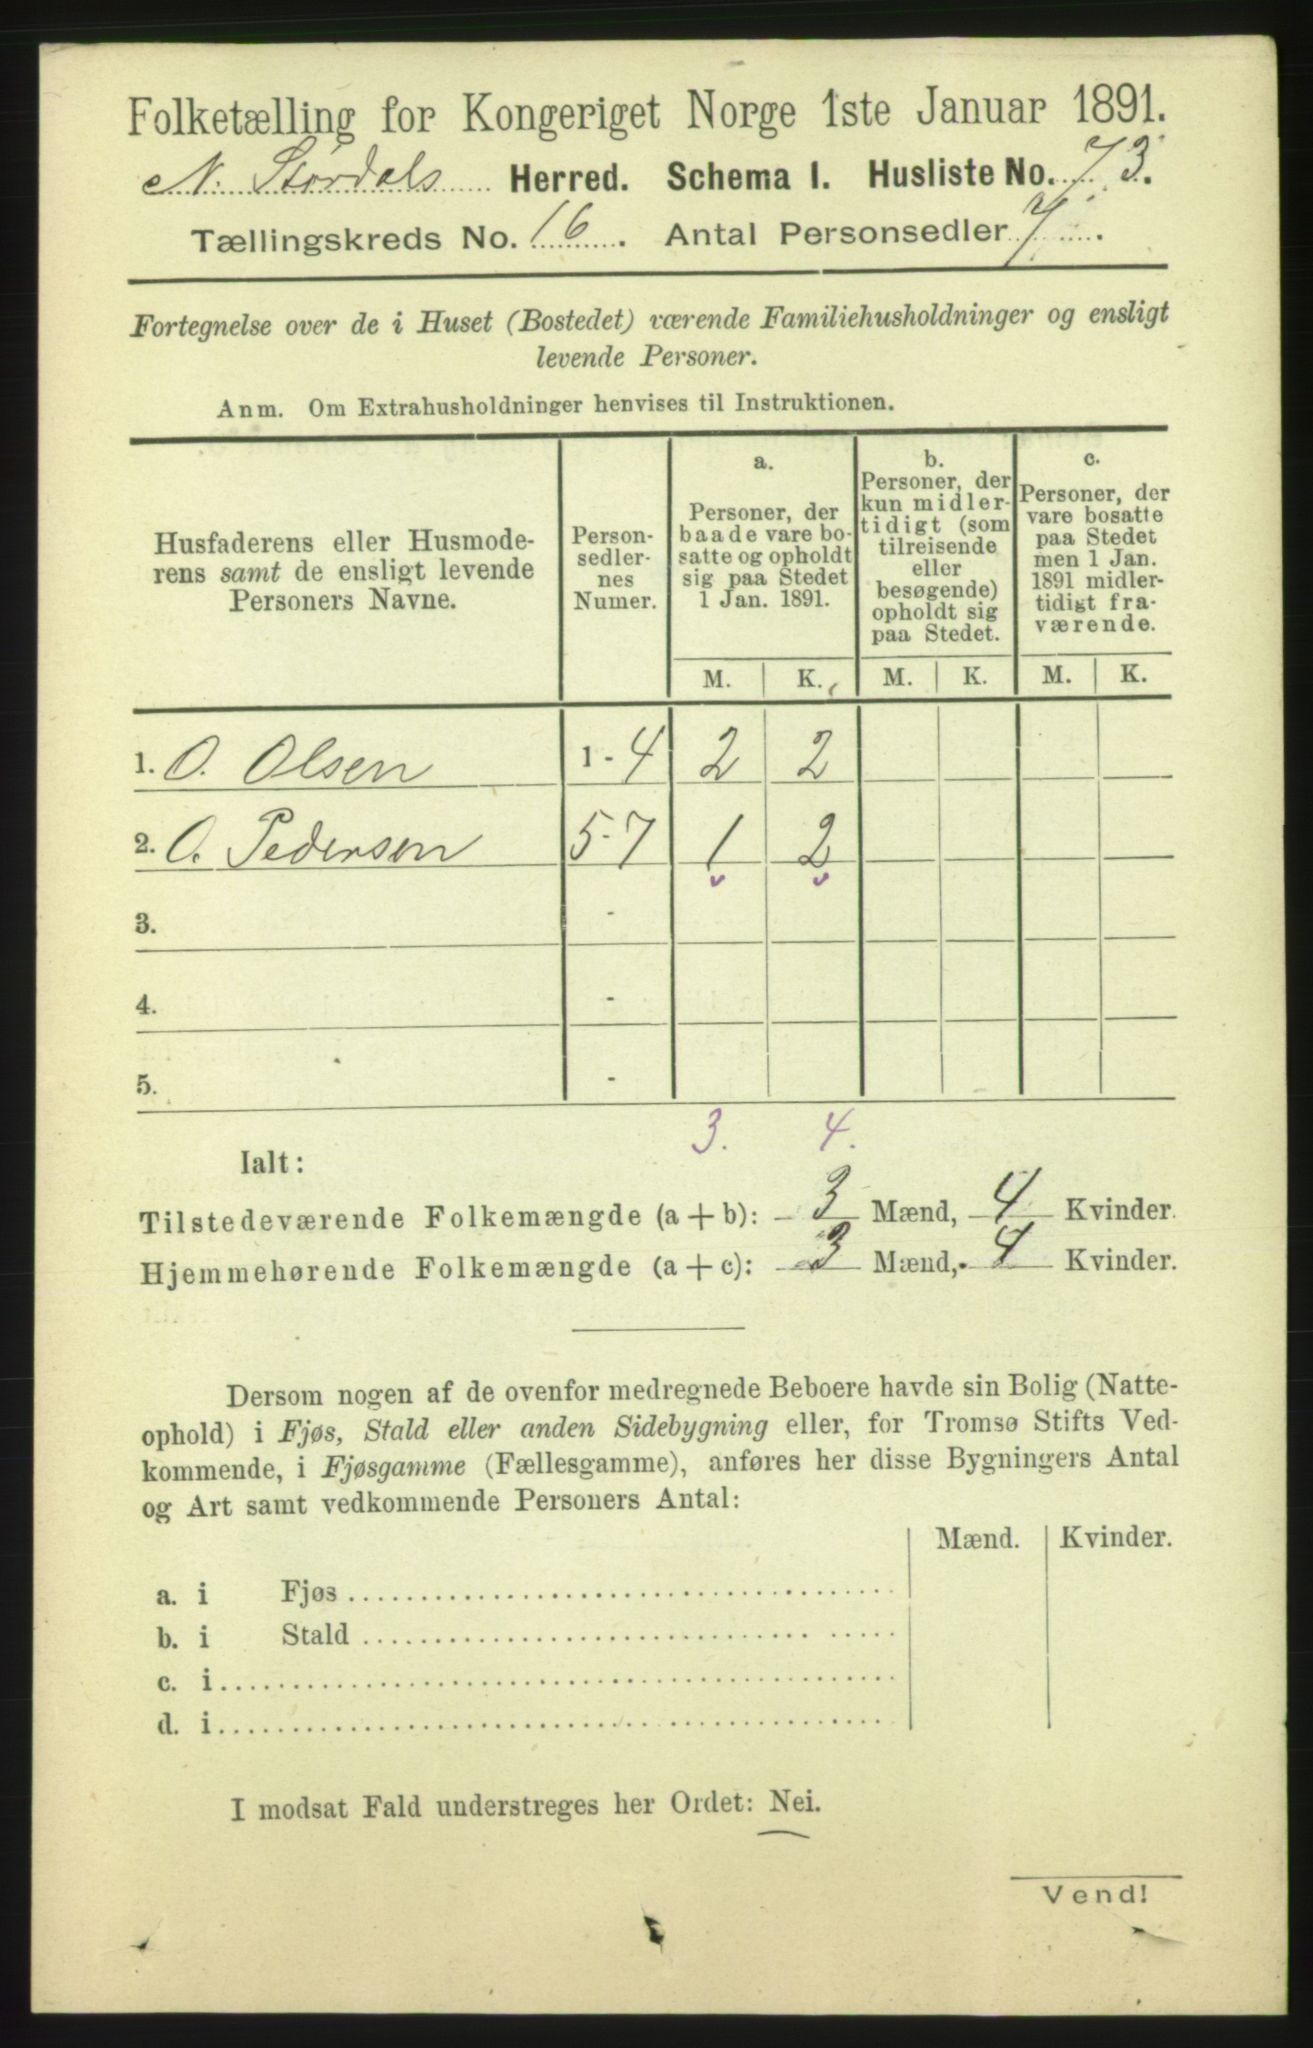 Folketælling for Kongeriget Norge 1ste Januar 1891.
N. Størdals Herred. Schema I. Husliste No. 73.
Tællingskreds No. 16. Antal Personsedler 7.
Fortegnelse over de i Huset (Bostedet) værende Familiehusholdninger og ensligt
levende Personer.
Anm. Om Extrahusholdninger henvises til Instruktionen.
Husfaderens eller Husmode-
rens samt de ensligt levende
Personers Navne.
Person-
sedler-
nes
Numer.
a.
Personer, der
baade vare bo-
satte og opholdt
sig paa Stedet
1 Jan. 1891.
b.
Personer, der
kun midler-
tidigt (som
tilreisende
eller
besøgende)
opholdt sig
paa Stedet.
c.
Personer, der
vare bosatte
paa Stedet
men 1 Jan.
1891 midler-
tidigt fra-
værende.
M. K. M. K. M. K.
1. O. Olsen 1 - 4 2 2
2. O. Pedersen 5-7 1 2
3. -
4. -
5. -
3. 4.
Ialt:
Tilstedeværende Folkemængde (a + b): 3 Mænd, 4 Kvinder.
Hjemmehørende Folkemængde (a + c): 3 Mænd, 4 Kvinder.
Dersom nogen af de ovenfor medregnede Beboere havde sin Bolig (Natte-
ophold) i Fjøs, Stald eller anden Sidebygning eller, for Tromsø Stifts Ved-
kommende, i Fjøsgamme (Fællesgamme), anføres her disse Bygningers Antal
og Art samt vedkommende Personers Antal:
Mænd. Kvinder.
a. i Fjøs
b. i Stald
c. i
d. i
I modsat Fald understreges her Ordet: Nei.
Vend!